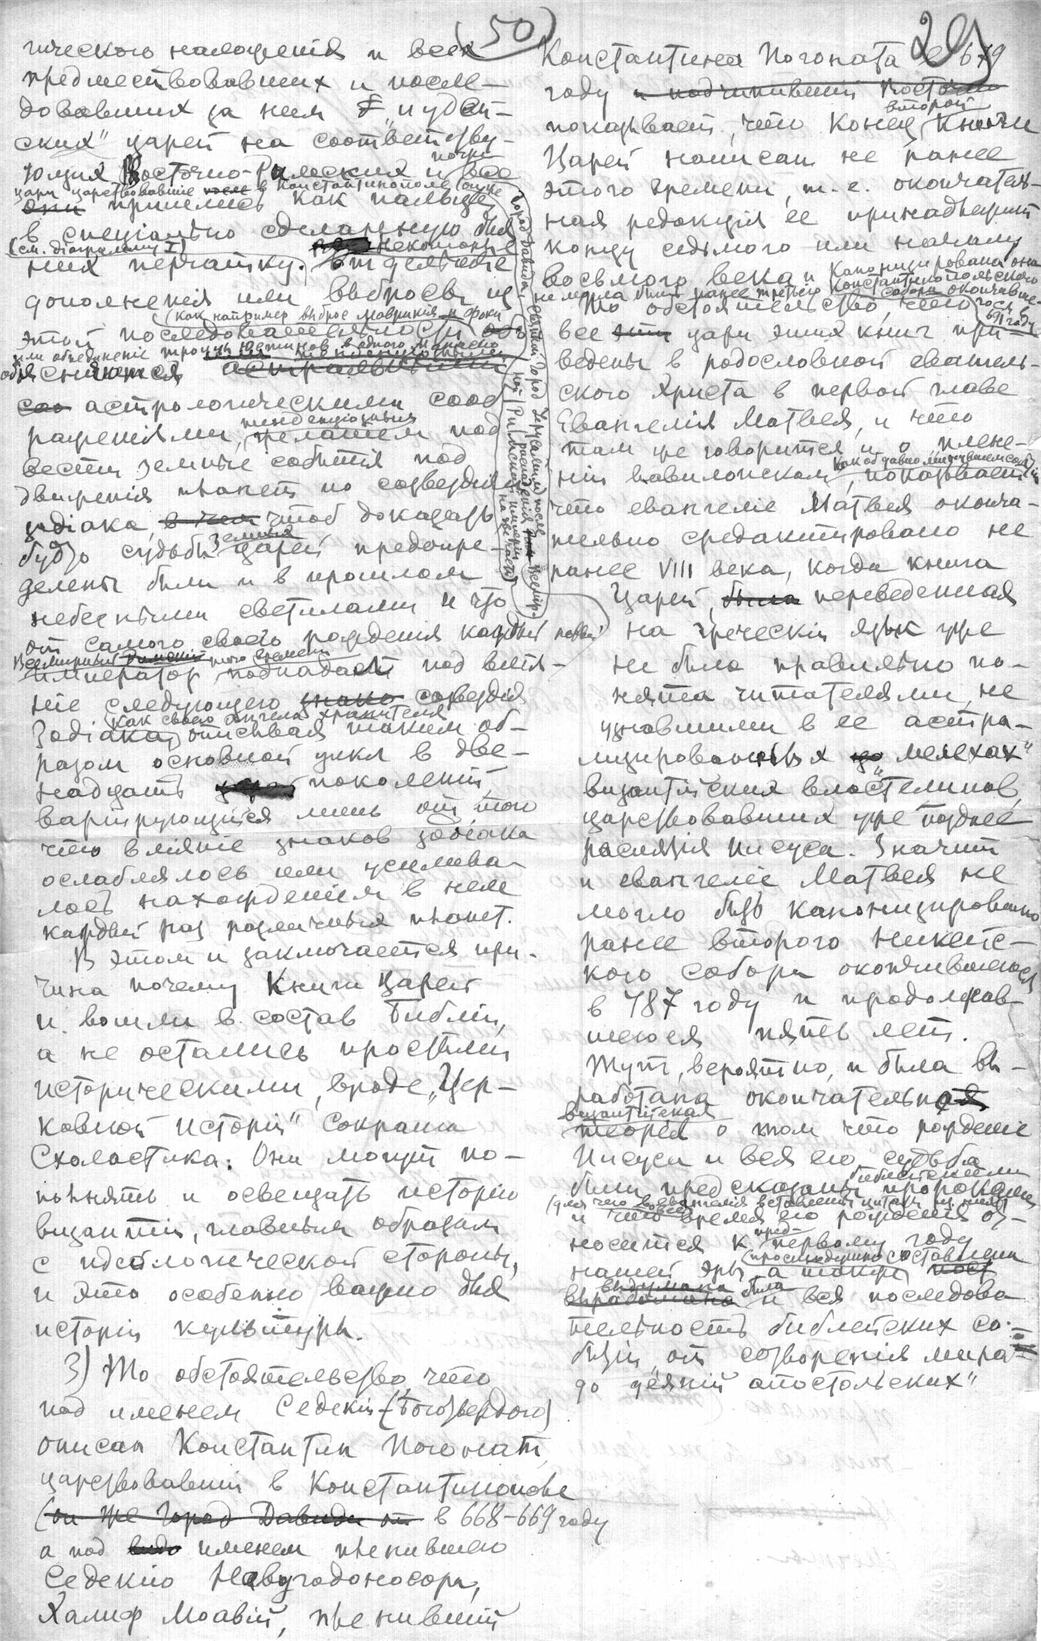 (50)
29
гического наложенія и всех
предшествовавших и после-
довавших за нем „иудей-
ских" царей на соответству-
ющих Восточно-Римских и все почти
цари царствовавшие в Константинополе
они пришлись как пальцы
в спеціально сделанную для
(см. діаграмму I) некоторые
них перчатку. Отдельные
дополненія или выбросы из
(как например выброс Маврикія и Фоки
этой последовательности
или объединеніе троих Юстинов в одного Манассію
объясняются
астрологическими сооб-
раженіями, желаніем под-
тенденціозным
вести земные событія под
движенія планет по созвездіям
зодіака, чтоб доказать
будто судьбы царей предопре-
земных
делены были и в прошлом
небесными светилами и что
от самого своего рожденія каждый новый
император подпадает под влія-
ніе следующего созвездія
как своего ангела хранителя
Зодіака, описывая таким об-
разом основной цикл в две-
надцать поколений,
варіирующійся лишь от того
что вліяніе знаков зодіака
ослаблялось или усилива-
лось нахожденіем в нем
каждый раз различных планет.
В этом и заключается при-
чина почему Книги Царей
и вошли в состав Библіи,
а не остались простыми
историческими, вроде „Цер-
ковной исторіи" Сократа
Схоластика. Они могут по-
полнять и освещать исторію
византіи, главным образом
с идеологической стороны,
и это особенно важно для
исторіи культуры.
3) То обстоятельство, что
под именем Седекіи (Боготвердого)
описан Константин Погонат,
царствовавший в Константинополе
(он же Город Давида от в 668-669 году
а под именем пленившего
Седекию Навуходоносора,
Халиф Моавій, пленивший
Константина Погоната в 679
году и подчинивший Восточн
второй
показывает, что конец книги
Царей написан не ранее
этого времени, т. е. окончатель-
ная редакція ее принадлежит
концу седьмого или началу
восьмого века и канонизирована она
не могла быть ранее третьего Константинопольского
собора окончивше-
гося в
691 году
То обстоятельство, что
все цари этих книг при-
ведены в родословной евангель-
ского Христа в первой главе
Евангелія Матвея, и что
там же говорится и о плене-
ніи вавилонском, показывает
как о давно минувшем событии
что евангеліе Матвея оконча-
тельно средактировано не
ранее VIII века, когда книга
Царей, переведенная
на греческій язык уже
не была правильно по-
нята читателями, не
узнавшими в ее астра-
лизированных „мелехах"
византійских властелинов,
царствовавших уже позднее
распятія Иисуса. Значит
и евангеліе Матвея не
могло быть канонизировано
ранее второго Никейс-
кого собора окончившегося
в 787 году и продолжав-
шегося пять лет.
Тут, вероятно, и была вы-
работана окончательная
византійская
теорія о том что рожденіе
Иисуса и вся его судьба
были предсказаны пророками
библейскими
(для чего в евангелія вставлены цитаты из них)
и что время его рожденія от-
носится к первому году
нашей эры, а также
выдумана была
выработана и вся последова-
тельность библейских со-
бытій „от сотворенія мира
до деяній апостольских"